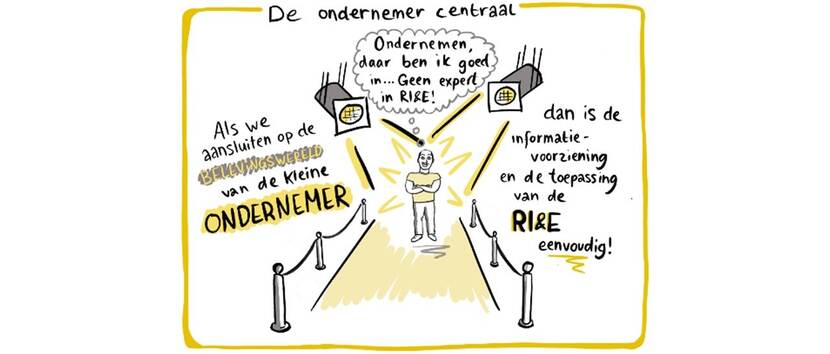 De ondernemer centraal
Ondernemen,
daar ben ik goed
in... Geen expert
in RI&E!
Als we
aansluiten op de
BELEVINGSWERELD
van de kleine
ONDERNEMER
dan is de
informatie-
voorziening
en de toepassing
van de
RI&E
eenvoudig!